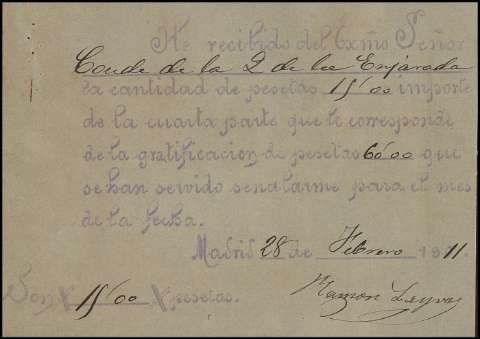 He recibido del Exmo Señor
Conde de la Q de la Enjarada
la cantidad de pesetas 15'00 importe
de la cuarta parte que le corresponde
de la gratificacion de pesetas 60'00 que
se han servido señalarme para el mes
de la fecha.
Madrid 28 de Febrero 1911.
Son # 15'00 # pesetas.
Ramon Leyva